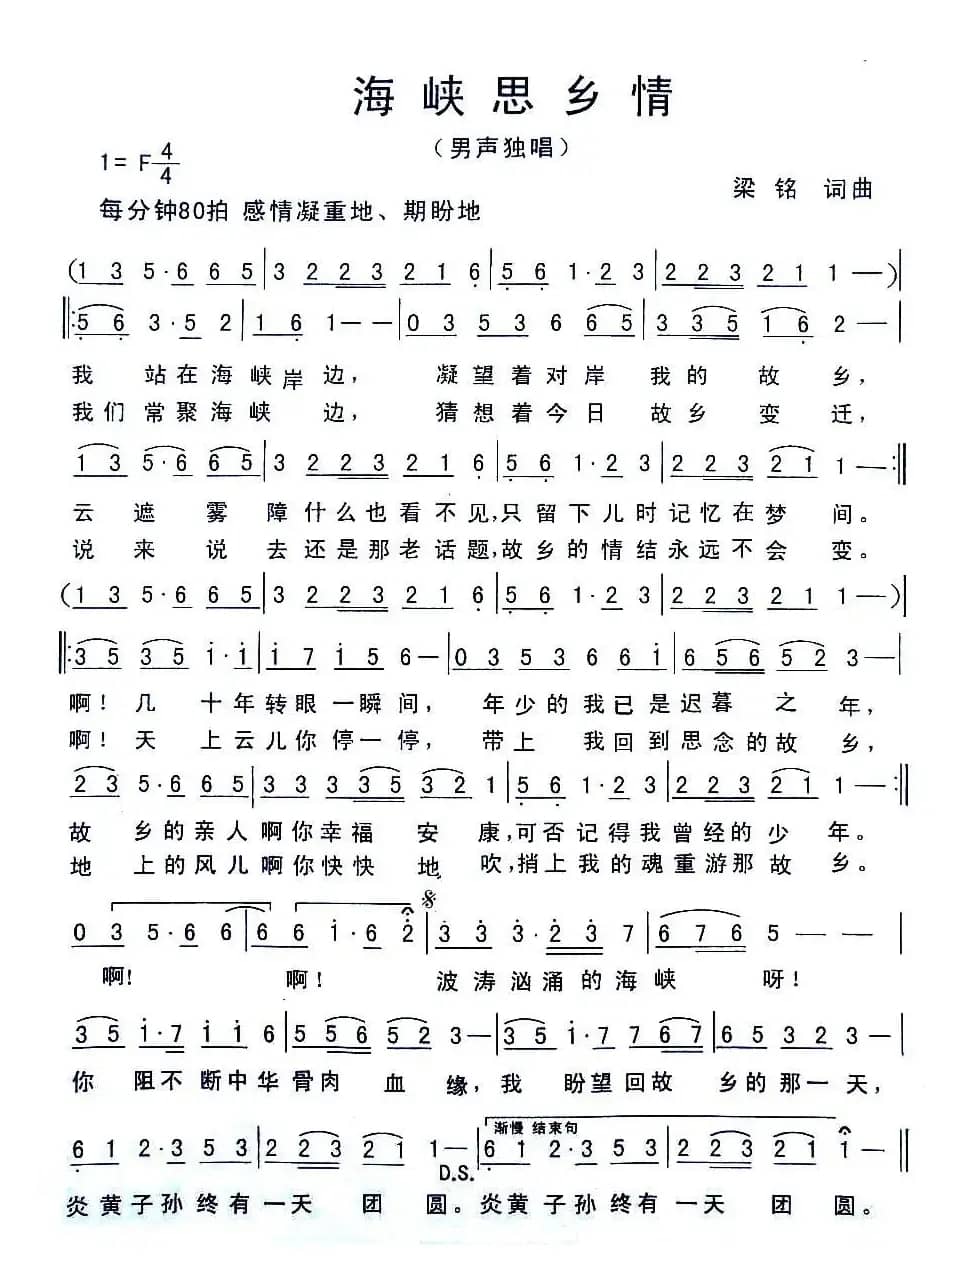 海峡思乡情
（男声独唱）
1= F 4/4
梁 铭 词曲
每分钟80拍 感情凝重地、期盼地
(1 3 5·6 6 6 5 | 3 2 2 2 3 2 2 1 6 | 5 6 1·2 2 3 | 2 2 2 3 2 1 1 1 —)
‖: 5 6 3·5 2 | 1 6 1 — — | 0 3 5 3 6 6 5 | 3 3 5 1 6 2 — |
我 站在海峡岸边， 凝望着对岸 我的 故 乡，
我们常聚海峡 边， 猜想着今日 故乡 变 迁，
1 3 5·6 6 5 | 3 2 2 2 3 2 2 1 6 | 5 6 1·2 2 3 | 2 2 2 3 2 1 1 — :‖
云 遮 雾 障什么也看不见,只留下儿时记忆在梦 间。
说 来 说 去还是那老话题,故乡的情结永远不会 变。
(1 3 5·6 6 5 | 3 2 2 3 2 2 1 6 | 5 6 1·2 2 3 | 2 2 2 3 2 1 1 1 —)
‖: 3 5 3 5 1·1 | 1 7 1 5 6 — | 0 3 5 3 6 6 1 | 6 5 6 5 2 3 — |
啊！几 十年转眼一瞬间， 年少的我已是迟暮 之 年，
啊！天 上云儿你停一停， 带上 我回到思念的故 乡，
2 3 5·6 6 5 | 3 3 3 3 5 3 2 1 | 5 6 1·2 2 3 | 2 2 2 3 2 1 1 — :‖
故 乡的亲人啊你幸福 安 康,可否记得我曾经的少 年。
地 上的风儿啊你快快 地 吹,捎上我的魂重游那故 乡。
0 3 5·6 6 | 6 6 1·6 2 | 3 3 3·2 3 7 | 6 7 6 5 — — |
啊! 啊! 波涛汹涌的海峡 呀!
3 5 1·7 1 1 6 | 5 5 6 5 2 3 — | 3 5 1·7 7 6 7 | 6 5 3 2 3 — |
你 阻不断中华骨肉 血 缘，我 盼望回故 乡的那一天，
渐慢 结束句
6 1 2·3 5 3 | 2 2 3 2 1 1 — | 6 1 2·3 5 3 | 2 2 3 2 1 1 — ‖
D.S.
炎黄子孙终有一天 团 圆。炎黄子孙终有一天 团 圆。